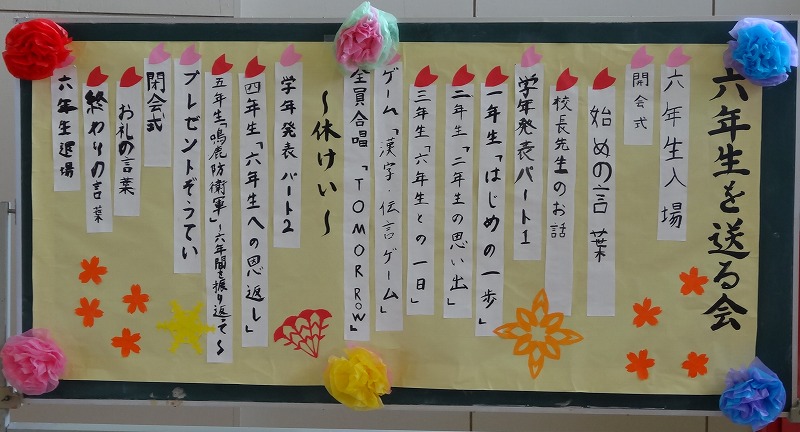 六年生を送る会
六年生入場
開会式
始めの言葉
校長先生のお話
学年発表パート1
一年生「はじめの一歩」
二年生「二年生の思い出」
三年生「六年生との一日」
ゲーム「漢字・伝言ゲーム」
全員合唱「TOMORROW」
～休けい～
学年発表パート2
四年生「六年生への恩返し」
五年生「鳴鹿防衛軍」～六年間を振り返って～
プレゼントぞうてい
閉会式
お礼の言葉
終わりの言葉
六年生退場